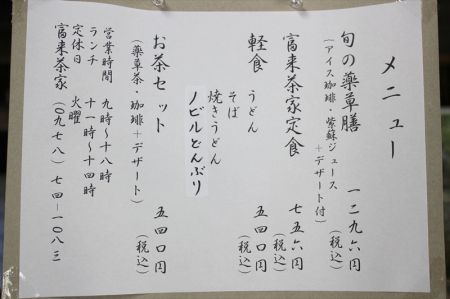 メニュー
旬の薬草膳 一二九六円
(アイス珈琲・紫蘇ジュース (税込)
+デザート付)
富来茶家定食 七五六円
(税込)
軽食 うどん 五四〇円
そば (税込)
焼きうどん
ノビルどんぶり
お茶セット 五四〇円
(薬草茶・珈琲+デザート) (税込)
営業時間 九時〜十八時
ランチ 十一時〜十四時
定休日 火曜
富来茶家 (〇九七八) 七四－一〇八三